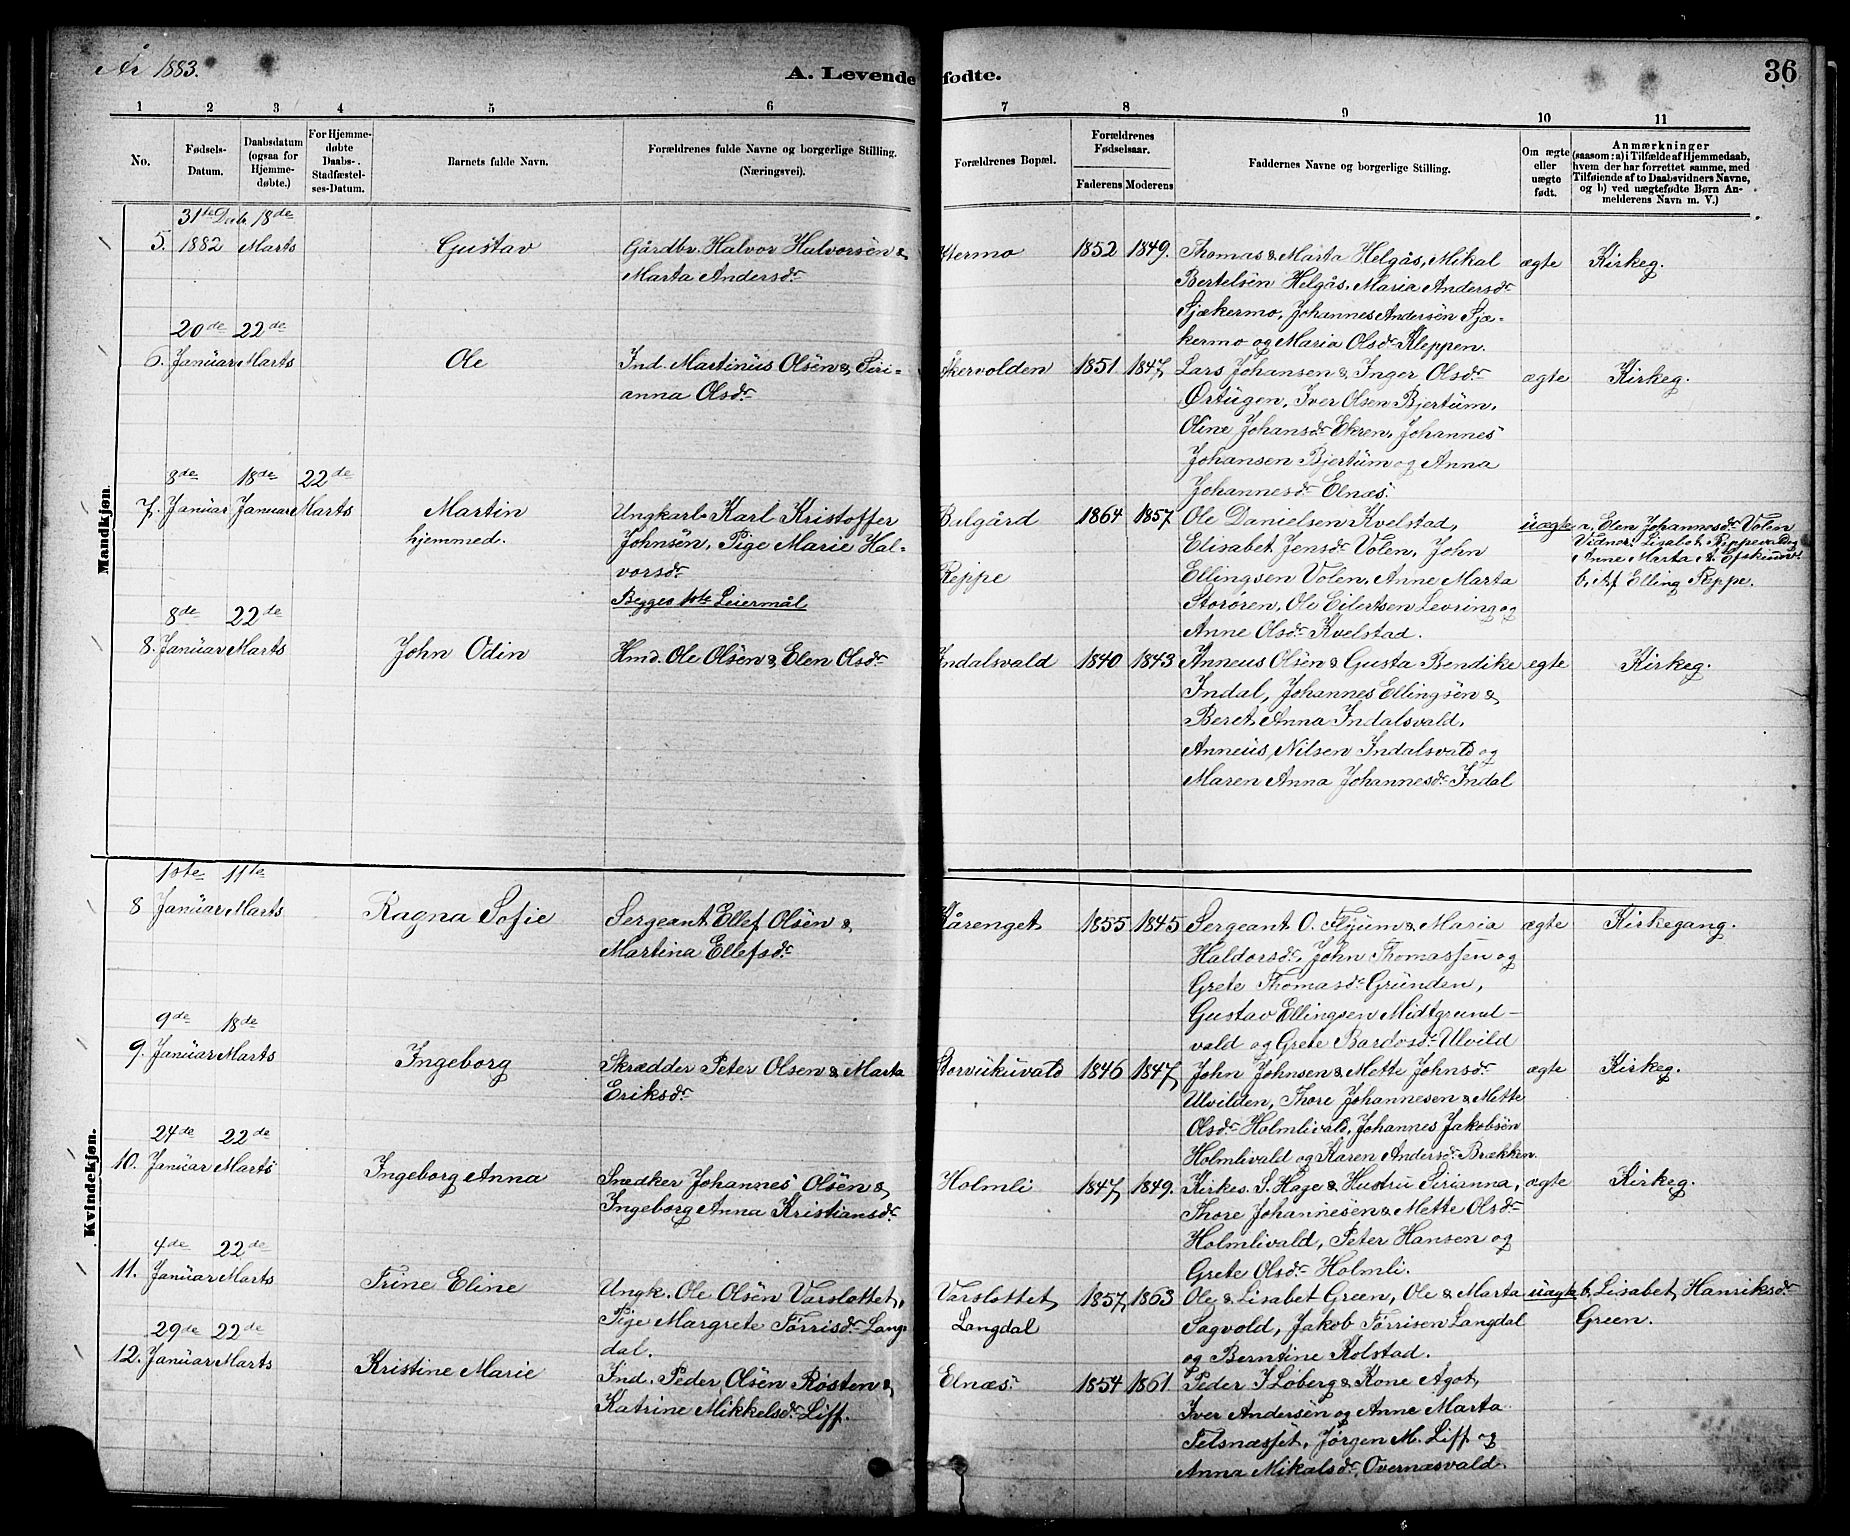 År 1883.
A. Levende fødte.
36
1 2 3 4 5 6 7 8 9 10 11
No.
Fødsels-Datum.
Daabsdatum (ogsaa for Hjemme-døbte.)
For Hjemme-døbte Daabs-Stadfæstel-ses-Datum.
Barnets fulde Navn.
Forældrenes fulde Navne og borgerlige Stilling. (Næringsvei).
Forældrenes Bopæl.
Forældrenes Fødselsaar.
Faderens Moderens
Faddernes Navne og borgerlige Stilling.
Om ægte eller uægte født.
Anmærkninger (saasom: a) i Tilfælde af Hjemmedaab, hvem der har forrettet samme, med Tilføiende af to Daabsvidners Navne, og b) ved uægtefødte Børn An-melderens Navn m. V.)
Mandkjøn.
31te Decb. 18de
5. 1882 Marts Gustav Gårdbr. Halvor Halvorsen & 1852 1849. Thomas & Marta Helgås, Mikal ægte Kirkeg.
Marta Andersdr Bertelsen Helgås, Maria Andersdr
Sjækermo, Johannes Andersen Sjæ-
20de 22de kermo og Maria Olsdr Kleppen.
6. Januar Marts Ole Ind. Martinus Olsen & Siri- Åkervolden 1851 1847 Lars Johansen & Inger Olsdr ægte Kirkeg.
anna Olsdr Ørtugen, Iver Olsen Bjertum,
Oline Johansdr Ekren, Johannes
Johansen Bjertum og Anna
8de 18de 22de Johannesdr Elnæs.
7. Januar Januar Marts Martin Ungkarl Karl Kristoffer Bulgård 1864 1857 Ole Danielsen Kvelstad, uægte a, Elen Johannesdr Volen
hjemmed. Johnsen, Pige Marie Hal- Elisabet Jensdr Volen, John Vidner: Lisabet
vorsdr Reppe Ellingsen Volen, Anne Marta Anne Marta A.
Begges 1ste Leiermål Storøren, Ole Eilertsen Levring og b, Af Elling Reppe.
8de 22de Anne Olsdr Kvelstad.
8. Januar Marts John Odin Hmd. Ole Olsen & Elen Olsdr Indalsvald 1840 1843 Anneus Olsen & Gusta Bendike ægte Kirkeg.
Indal, Johannes Ellingsen &
Beret Anna Indalsvald,
Anneus Nilsen Indalsvald og
Maren Anna Johannesdr Indal
Kvindekjøn.
1ste 11te
8 Januar Marts Ragna Sofie Sergeant Ellef Olsen & Kårenget 1855 1845 Sergeant O. Flyum & Maria ægte Kirkegang.
Martina Ellefsdr Haldorsdr, John Thomassen og
Grete Thomasdr Grunden,
9de 18de Gustav Ellingsen Midtgrund-
vald og Grete Bardosdr Ulvild
9. Januar Marts Ingeborg Skrædder Peter Olsen & Marta Storvukuvald 1846 1847 John Johnsen & Mette Johnsdr ægte Kirkeg.
Eriksdr Ulvilden, Thore Johannesen & Mette
24de 22de Olsdr Holmlivald, Johannes Jakobsen
Holmlivald og Karen Andersdr Brækken
10. Januar Marts Ingeborg Anna Snedker Johannes Olsen & Holmli 1847 1849. Kirkes. S. Hage & Hustru Sirianna, ægte Kirkeg.
Ingeborg Anna Kristiansdr Thore Johannesen & Mette Olsdr
4de 22de Holmlivald, Peter Hansen og
Grete Olsdr Holmli.
11. Januar Marts Trine Eline Ungk. Ole Olsen Varslottet, Varslottet 1857 1863 Ole & Lisabet Green, Ole & Marta uægte b, Lisabet Hanriksdr
29de 22de Pige Margrete Tørrisdr Lang- Langdal Sagvold, Jakob Tørrisen Langdal Green.
dal. og Berntine Kolstad.
12. Januar Marts Kristine Marie Ind. Peder Olsen Røsten & Elnæs 1854 1861 Peder I Loberg & Kone Agot,
Katrine Mikkelsdr Liff. Iver Andersen og Anne Marta
Felsnæsset, Jørgen M. Liff og
Anna Mikalsdr Overnæsvald.